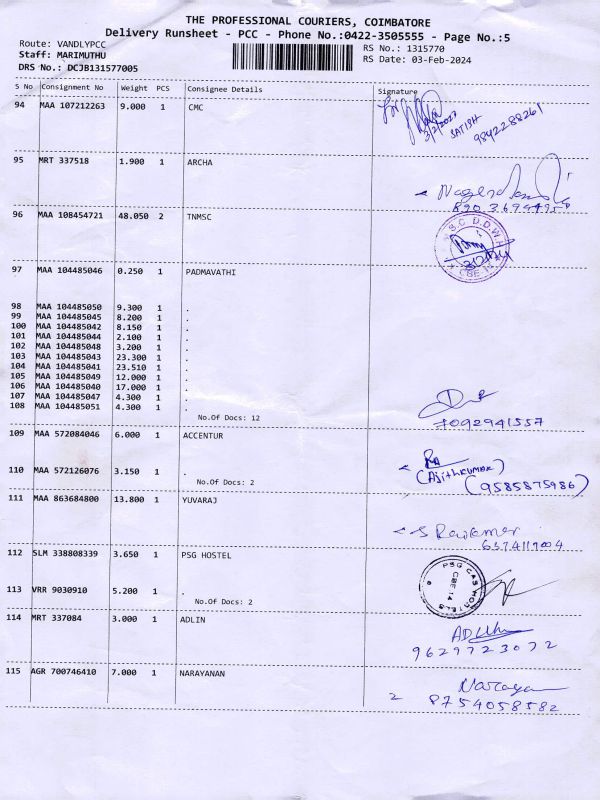 THE PROFESSIONAL COURIERS, COIMBATORE
Delivery Runsheet - PCC - Phone No.:0422-3505555 - Page No.:5
Route: VANDLYPCC
RS No.: 1315770
Staff: MARIMUTHU
RS Date: 03-Feb-2024
DRS No.: DCJB131577005
S No Consignment No Weight PCS Consignee Details Signature
94 MAA 107212263 9.000 1 CMC
SATISH
9842288261
95 MRT 337518 1.900 1 ARCHA
96 MAA 108454721 48.050 2 TNMSC
97 MAA 104485046 0.250 1 PADMAVATHI
98 MAA 104485050 9.300 1 .
99 MAA 104485045 8.200 1 .
100 MAA 104485042 8.150 1 .
101 MAA 104485044 2.100 1 .
102 MAA 104485048 3.200 1 .
103 MAA 104485043 23.300 1 .
104 MAA 104485041 23.510 1 .
105 MAA 104485049 12.000 1 .
106 MAA 104485040 17.000 1 .
107 MAA 104485047 4.300 1 .
108 MAA 104485051 4.300 1 .
No.Of Docs: 12
7092941557
109 MAA 572084046 6.000 1 ACCENTUR
110 MAA 572126076 3.150 1 .
(Ajithkumar)
No.Of Docs: 2
(9585875986)
111 MAA 863684800 13.800 1 YUVARAJ
112 SLM 338808339 3.650 1 PSG HOSTEL
PSG CAS HOSTELS
CBE-14
113 VRR 9030910 5.200 1 .
No.Of Docs: 2
114 MRT 337084 3.000 1 ADLIN
9629723072
115 AGR 700746410 7.000 1 NARAYANAN
Narayan
2 8754058582